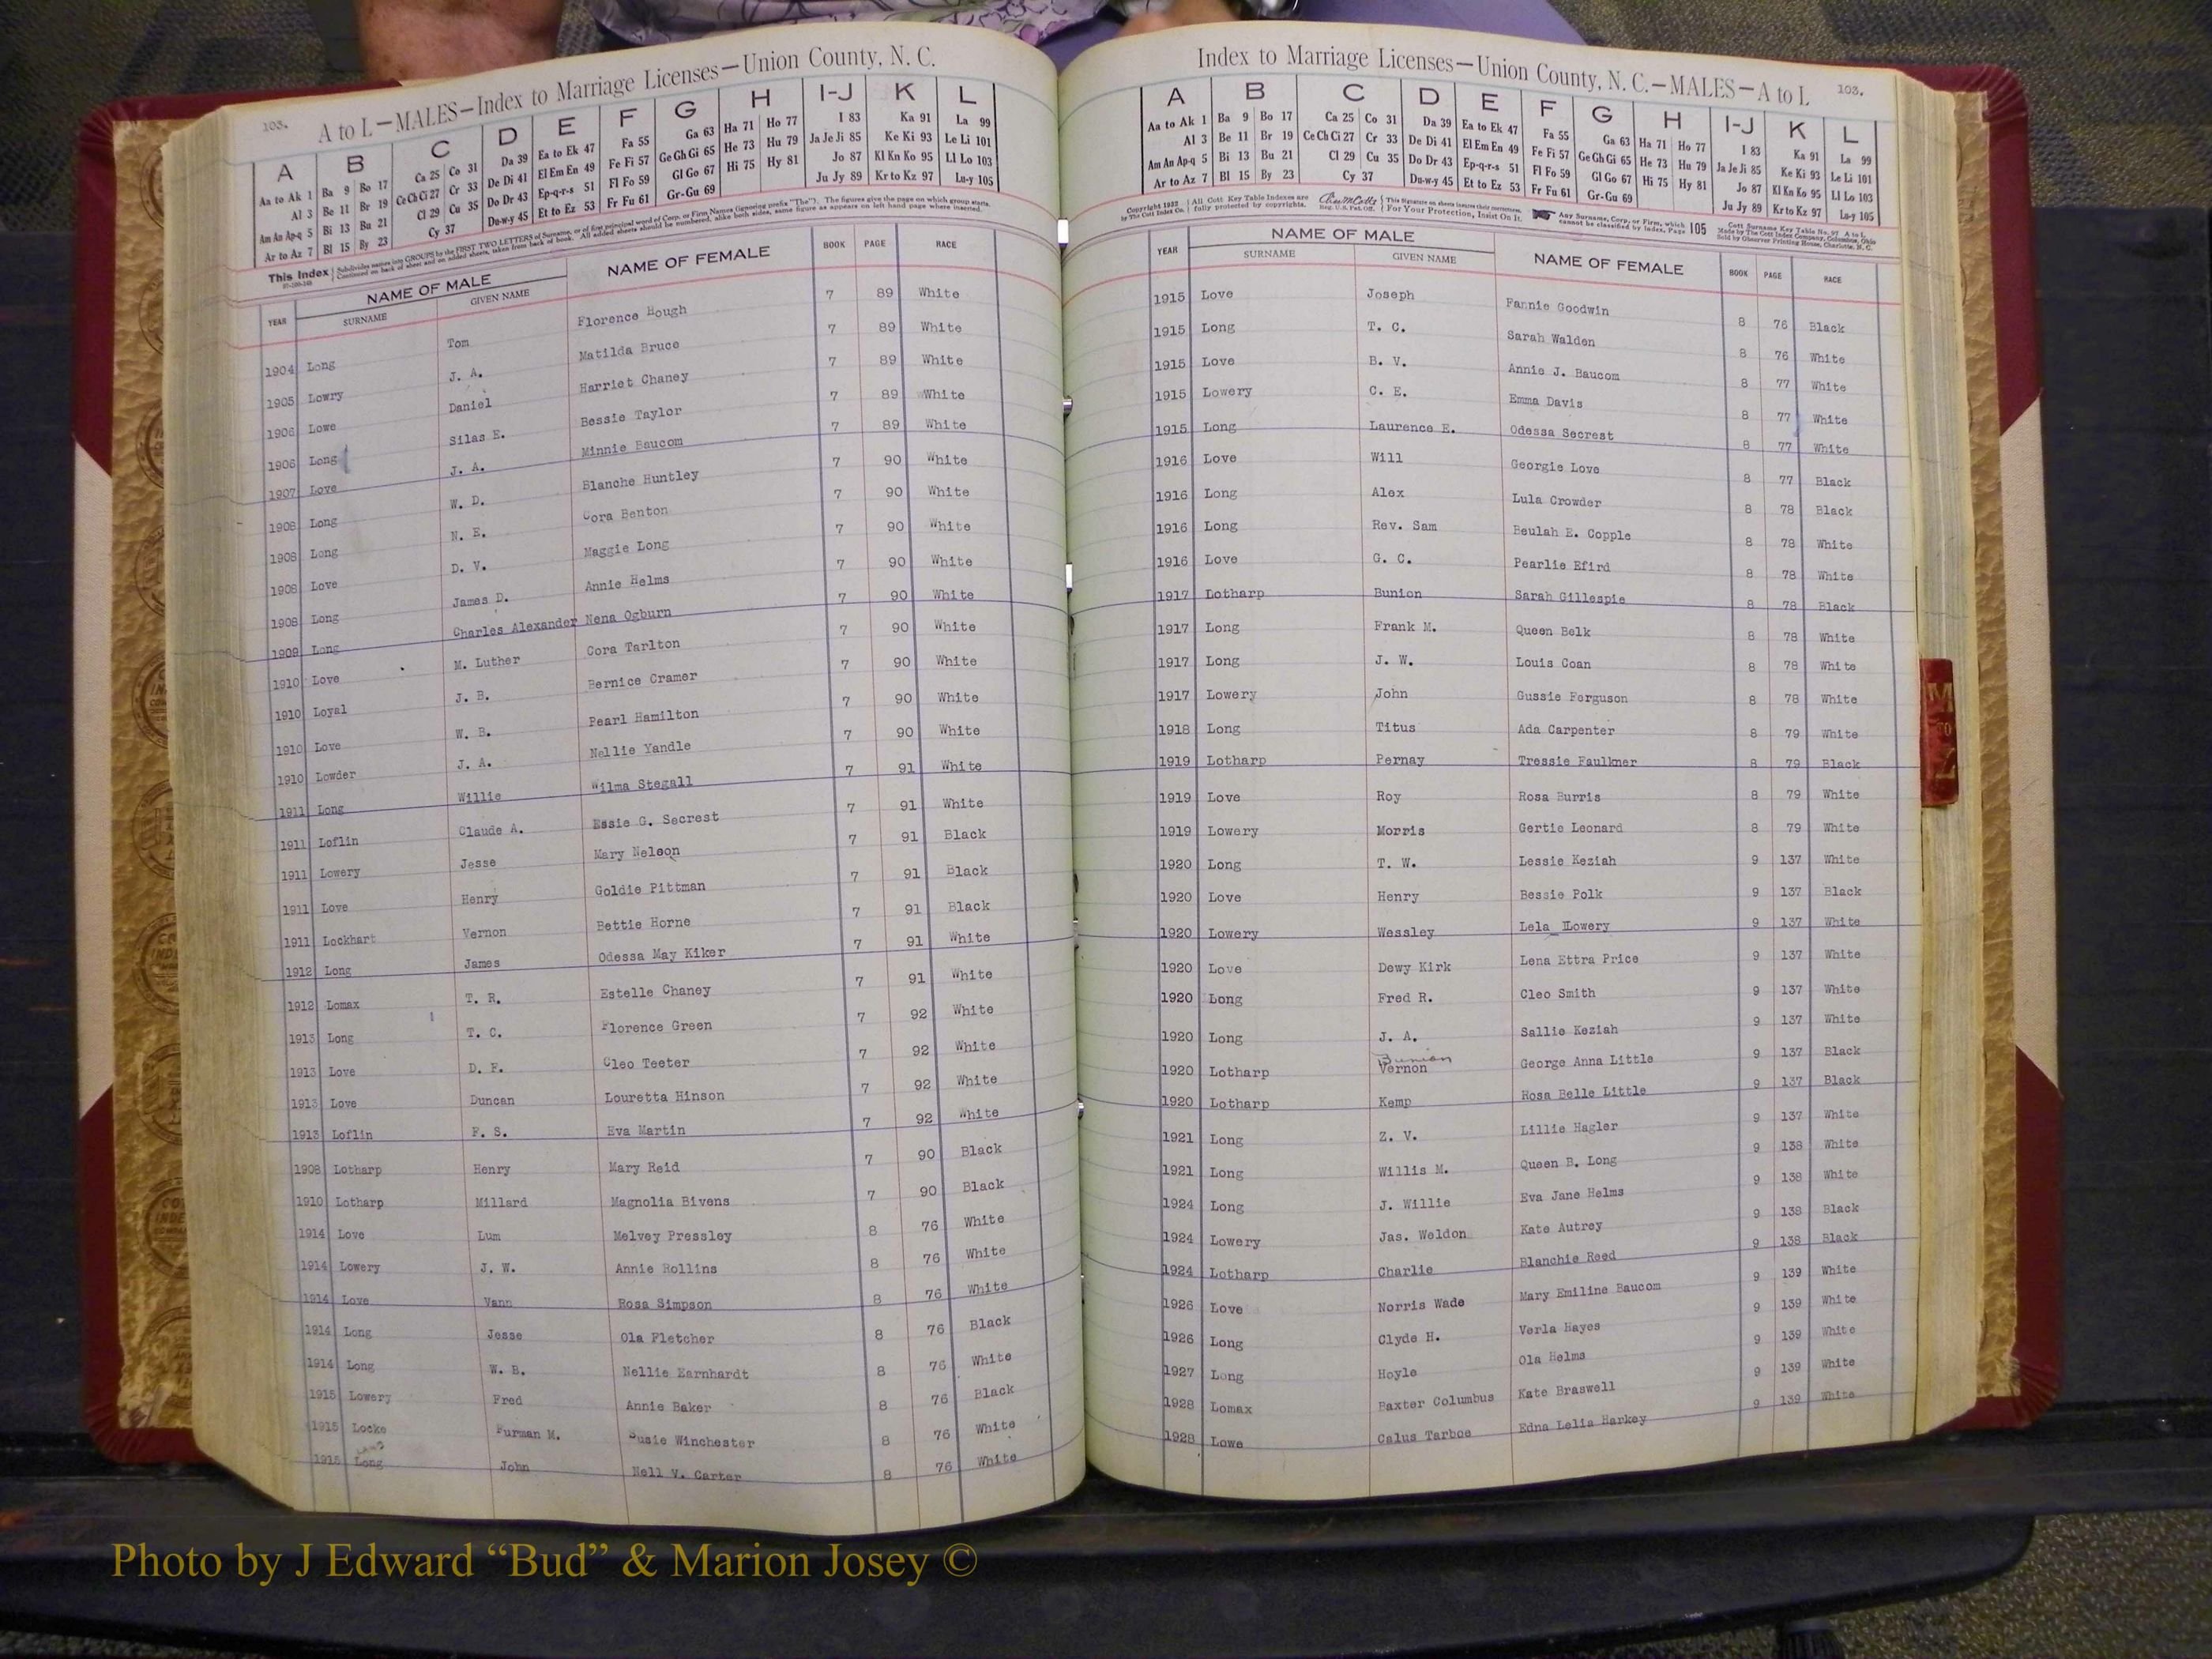 103. A to L—MALES—Index to Marriage Licenses—Union County, N. C.
A B C D E F G H I-J K L
Aa to Ak 1 Ba 9 Bo 17 Ca 25 Co 31 Da 39 Ea to Ek 47 Fa 55 Ga 63 Ha 71 Ho 77 I 83 Ka 91 La 99
Al 3 Be 11 Br 19 Ce Ch Ci 27 Cr 33 De Di 41 El Em En 49 Fe Fi 57 Ge Gh Gi 65 He 73 Hu 79 Ja Je Ji 85 Ke Ki 93 Le Li 101
Am An Ap-q 5 Bi 13 Bu 21 Cl 29 Cu 35 Do Dr 43 Ep-q-r-s 51 Fl Fo 59 Gl Go 67 Hi 75 Hy 81 Jo 87 Kl Kn Ko 95 Ll Lo 103
Ar to Az 7 Bl 15 By 23 Cy 37 Du-w-y 45 Et to Ez 53 Fr Fu 61 Gr-Gu 69 Ju Jy 89 Kr to Kz 97 Lu-y 105
This Index Subdivides names into GROUPS by the FIRST TWO LETTERS of Surname, or of first principal word of Corp. or Firm Names (ignoring prefix "The"). The figures give the page on which group starts.
Continued on back of sheet and on added sheets, taken from back of book. All added sheets should be numbered, alike both sides, same figure as appears on left hand page where inserted.
YEAR NAME OF MALE NAME OF FEMALE BOOK PAGE RACE
SURNAME GIVEN NAME
1904 Long Tom Florence Hough 7 89 White
1905 Lowry J. A. Matilda Bruce 7 89 White
1906 Lowe Daniel Harriet Chaney 7 89 White
1906 Long Silas E. Bessie Taylor 7 89 White
1907 Love J. A. Minnie Baucom 7 89 White
1908 Long W. D. Blanche Huntley 7 90 White
1908 Long N. E. Cora Benton 7 90 White
1908 Love D. V. Maggie Long 7 90 White
1908 Long James D. Annie Helms 7 90 White
1909 Long Charles Alexander Nena Ogburn 7 90 White
1910 Love M. Luther Cora Tarlton 7 90 White
1910 Loyal J. B. Bernice Cramer 7 90 White
1910 Love W. B. Pearl Hamilton 7 90 White
1910 Lowder J. A. Nellie Yandle 7 90 White
1911 Long Willie Wilma Stegall 7 91 White
1911 Loflin Claude A. Essie G. Secrest 7 91 White
1911 Lowery Jesse Mary Nelson 7 91 Black
1911 Love Henry Goldie Pittman 7 91 Black
1911 Lockhart Vernon Bettie Horne 7 91 Black
1912 Long James Odessa May Kiker 7 91 White
1912 Lomax T. R. Estelle Chaney 7 91 White
1913 Long T. C. Florence Green 7 92 White
1913 Love D. F. Cleo Teeter 7 92 White
1913 Love Duncan Louretta Hinson 7 92 White
1913 Loflin F. S. Eva Martin 7 92 White
1908 Lotharp Henry Mary Reid 7 90 Black
1910 Lotharp Millard Magnolia Bivens 7 90 Black
1914 Love Lum Melvey Pressley 8 76 White
1914 Lowery J. W. Annie Rollins 8 76 White
1914 Love Vann Rosa Simpson 8 76 White
1914 Long Jesse Ola Fletcher 8 76 Black
1914 Long W. B. Nellie Earnhardt 8 76 White
1915 Lowery Fred Annie Baker 8 76 Black
1915 Locke Furman M. Susie Winchester 8 76 White
1915 Long John Nell V. Carter 8 76 White
Index to Marriage Licenses—Union County, N. C.—MALES—A to L 103.
A B C D E F G H I-J K L
Aa to Ak 1 Ba 9 Bo 17 Ca 25 Co 31 Da 39 Ea to Ek 47 Fa 55 Ga 63 Ha 71 Ho 77 I 83 Ka 91 La 99
Al 3 Be 11 Br 19 Ce Ch Ci 27 Cr 33 De Di 41 El Em En 49 Fe Fi 57 Ge Gh Gi 65 He 73 Hu 79 Ja Je Ji 85 Ke Ki 93 Le Li 101
Am An Ap-q 5 Bi 13 Bu 21 Cl 29 Cu 35 Do Dr 43 Ep-q-r-s 51 Fl Fo 59 Gl Go 67 Hi 75 Hy 81 Jo 87 Kl Kn Ko 95 Ll Lo 103
Ar to Az 7 Bl 15 By 23 Cy 37 Du-w-y 45 Et to Ez 53 Fr Fu 61 Gr-Gu 69 Ju Jy 89 Kr to Kz 97 Lu-y 105
Copyright All Cott Key Table Indexes are This Signature on sheets insures their correctness. Any Surname, Corp. or Firm, which
by The Cott Index Co. fully protected by copyrights. Reg. U.S. Pat. Off. For Your Protection, Insist On It. cannot be classified by Index, Page 105
YEAR NAME OF MALE NAME OF FEMALE BOOK PAGE RACE
SURNAME GIVEN NAME
1915 Love Joseph Fannie Goodwin 8 76 Black
1915 Long T. C. Sarah Walden 8 76 White
1915 Love B. V. Annie J. Baucom 8 77 White
1915 Lowery C. E. Emma Davis 8 77 White
1915 Long Laurence E. Odessa Secrest 8 77 White
1916 Love Will Georgie Love 8 77 Black
1916 Long Alex Lula Crowder 8 78 Black
1916 Long Rev. Sam Beulah E. Copple 8 78 White
1916 Love G. C. Pearlie Efird 8 78 White
1917 Lotharp Bunion Sarah Gillespie 8 78 Black
1917 Long Frank M. Queen Belk 8 78 White
1917 Long J. W. Louis Coan 8 78 White
1917 Lowery John Gussie Ferguson 8 78 White
1918 Long Titus Ada Carpenter 8 79 White
1919 Lotharp Pernay Tressie Faulkner 8 79 Black
1919 Love Roy Rosa Burris 8 79 White
1919 Lowery Morris Gertie Leonard 8 79 White
1920 Long T. W. Lessie Keziah 9 137 White
1920 Love Henry Bessie Polk 9 137 Black
1920 Lowery Wessley Lela Lowery 9 137 White
1920 Love Dewy Kirk Lena Ettra Price 9 137 White
1920 Long Fred R. Cleo Smith 9 137 White
1920 Long J. A. Sallie Keziah 9 137 White
Bunion
1920 Lotharp Vernon George Anna Little 9 137 Black
1920 Lotharp Kemp Rosa Belle Little 9 137 Black
1921 Long Z. V. Lillie Hagler 9 137 White
1921 Long Willis M. Queen B. Long 9 138 White
1924 Long J. Willie Eva Jane Helms 9 138 White
1924 Lowery Jas. Weldon Kate Autrey 9 138 Black
1924 Lotharp Charlie Blanchie Reed 9 138 Black
1926 Love Norris Wade Mary Emiline Baucom 9 139 White
1926 Long Clyde H. Verla Hayes 9 139 White
1927 Long Hoyle Ola Helms 9 139 White
1928 Lomax Baxter Columbus Kate Braswell 9 139 White
1928 Lowe Calus Tarboe Edna Lelia Harkey 9 139 White
M
TO
Z
Photo by J Edward “Bud” & Marion Josey ©